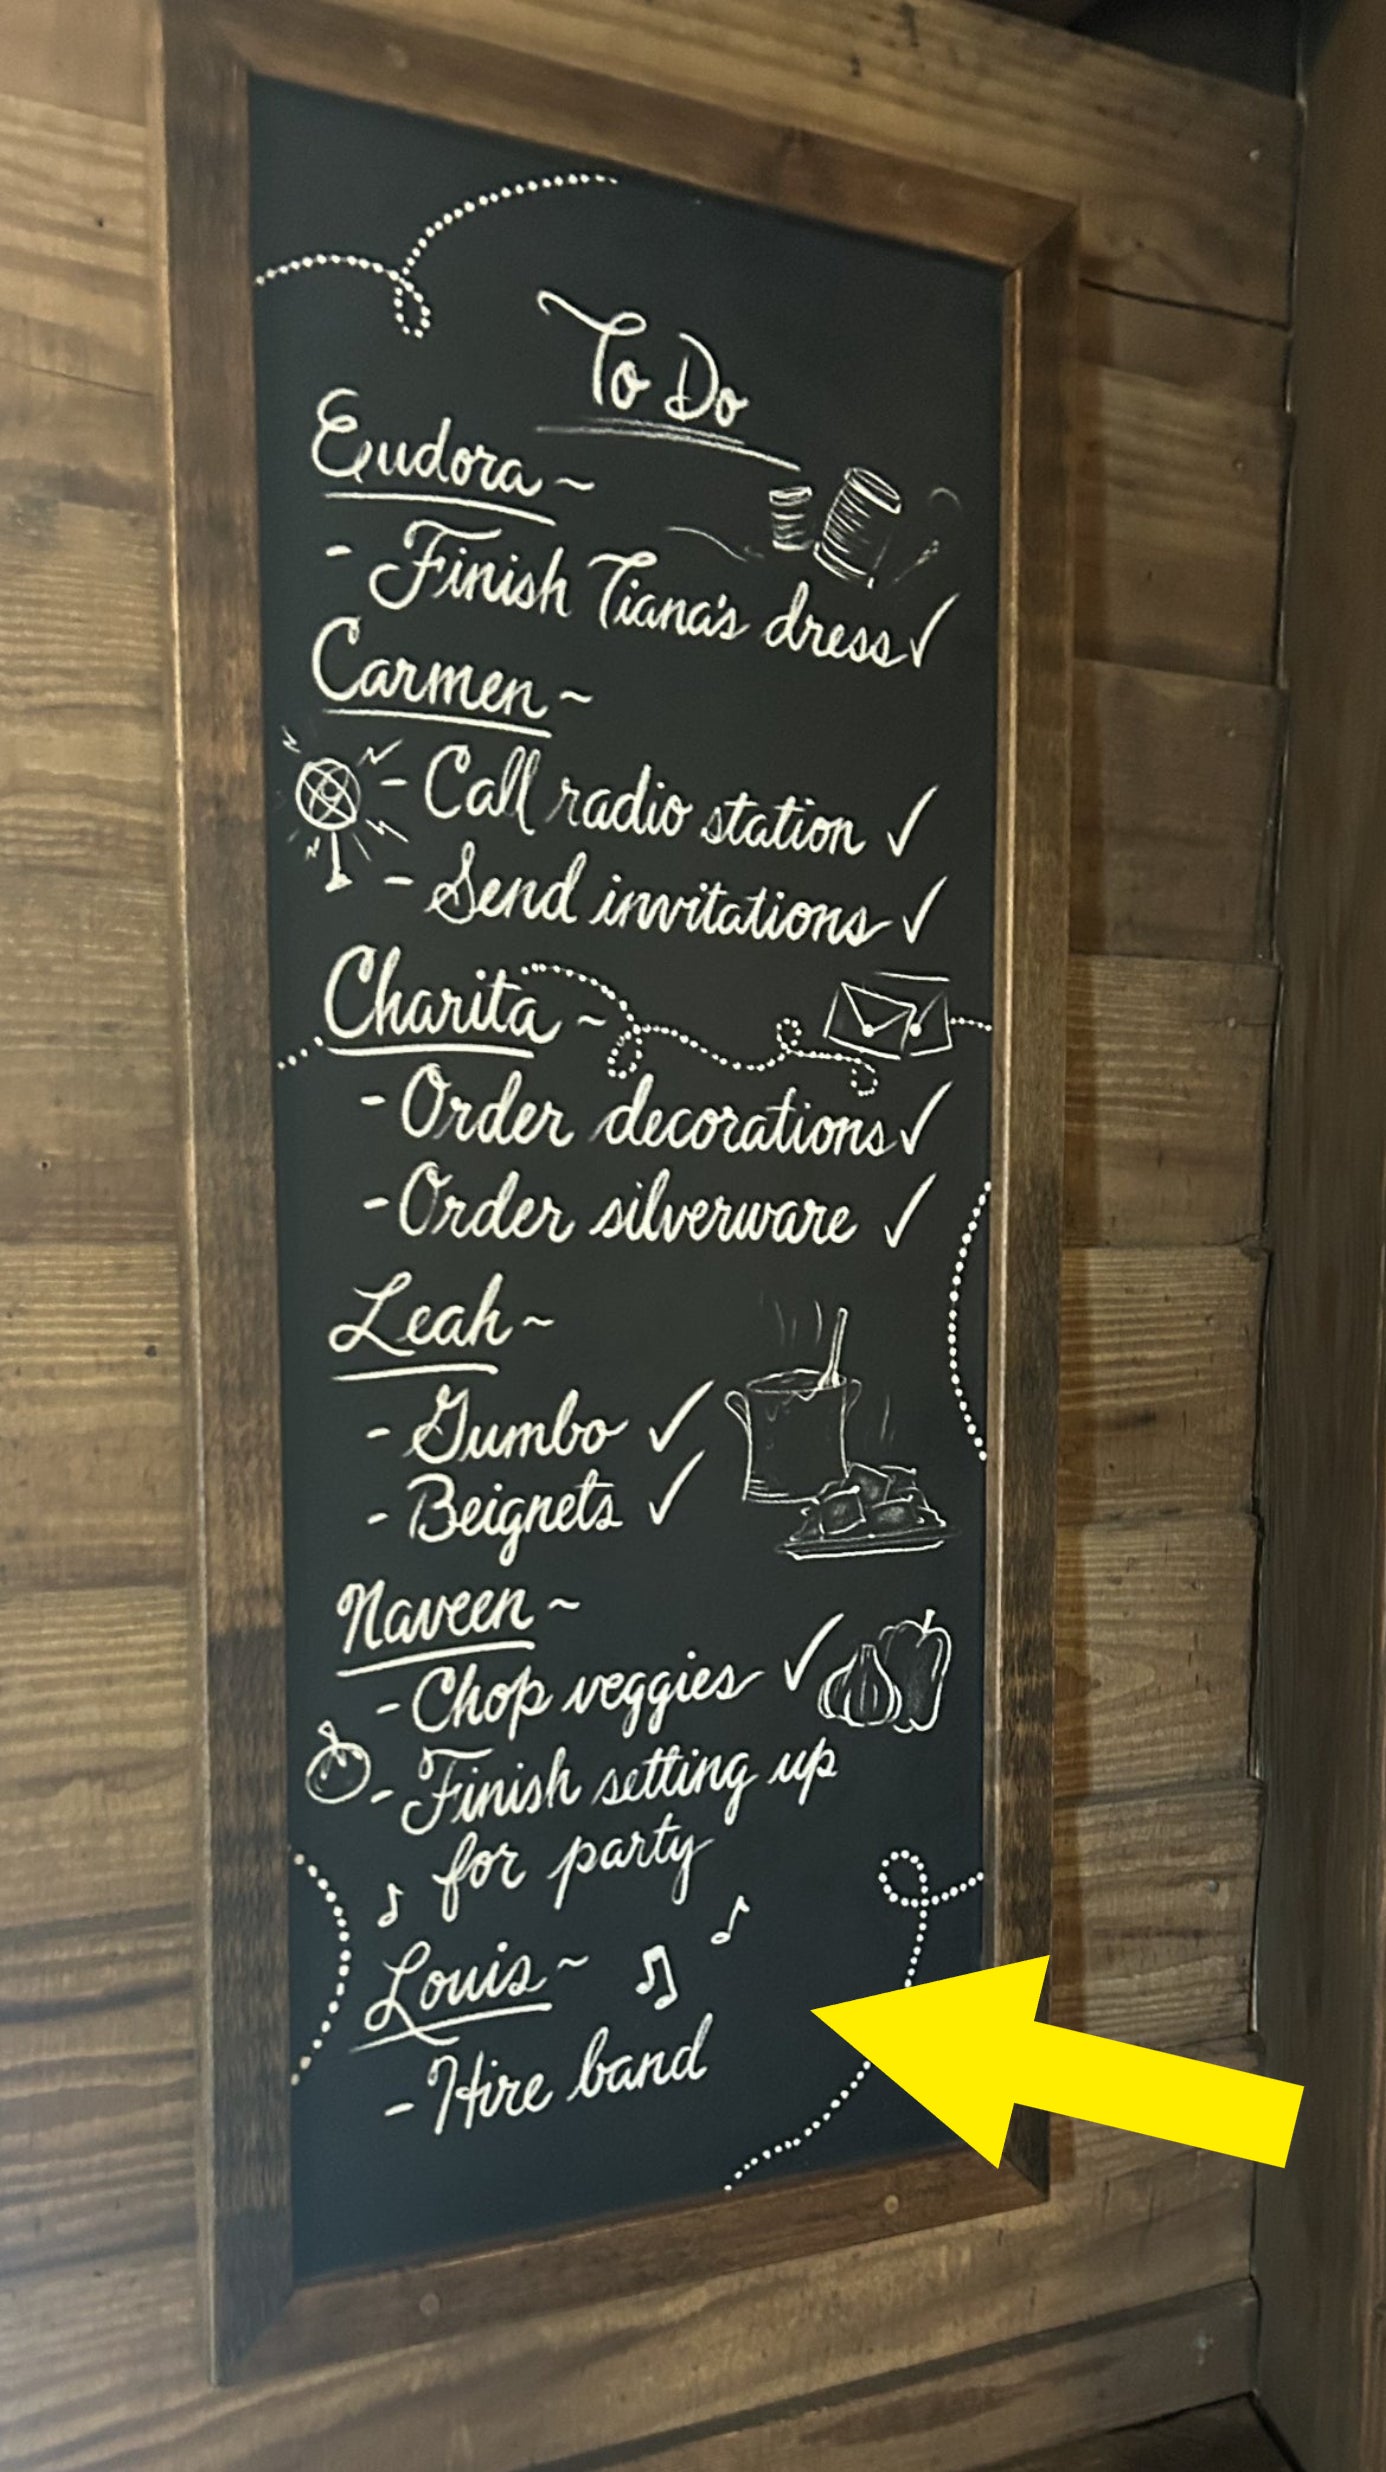 To Do
Eudora ~
- Finish Tiana's dress ✓
Carmen ~
- Call radio station ✓
- Send invitations ✓
Charita ~
- Order decorations ✓
- Order silverware ✓
Leah ~
- Gumbo ✓
- Beignets ✓
Naveen ~
- Chop veggies ✓
- Finish setting up
for party
Louis ~
- Hire band